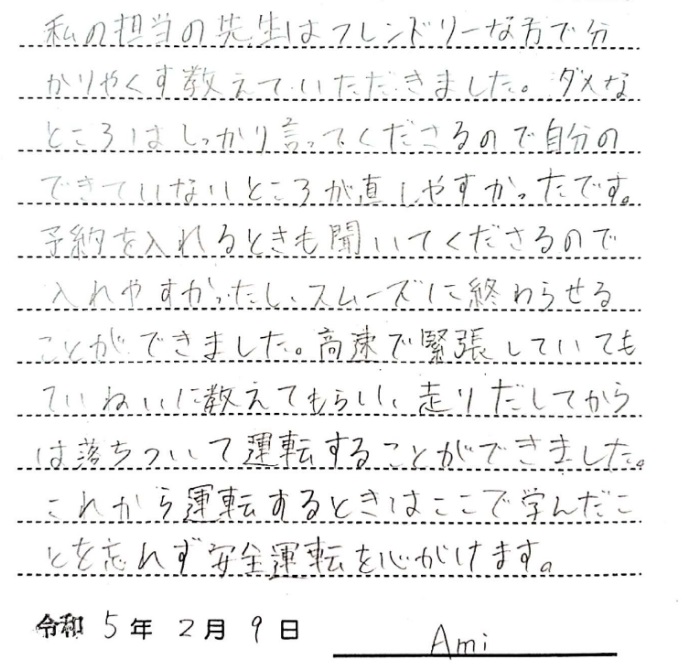 私の担当の先生はフレンドリーな方で分
かりやくす教えていただきました。ダメな
ところはしっかり言ってくださるので自分の
できていないところが直しやすかったです。
予約を入れるときも聞いてくださるので
入れやすかったし、スムーズに終わらせる
ことができました。高速で緊張していても
ていねいに教えてもらい、走りだしてから
は落ちついて運転することができました。
これから運転するときはここで学んだこ
とを忘れず安全運転を心がけます。
令和 5年 2月 9日 Ami